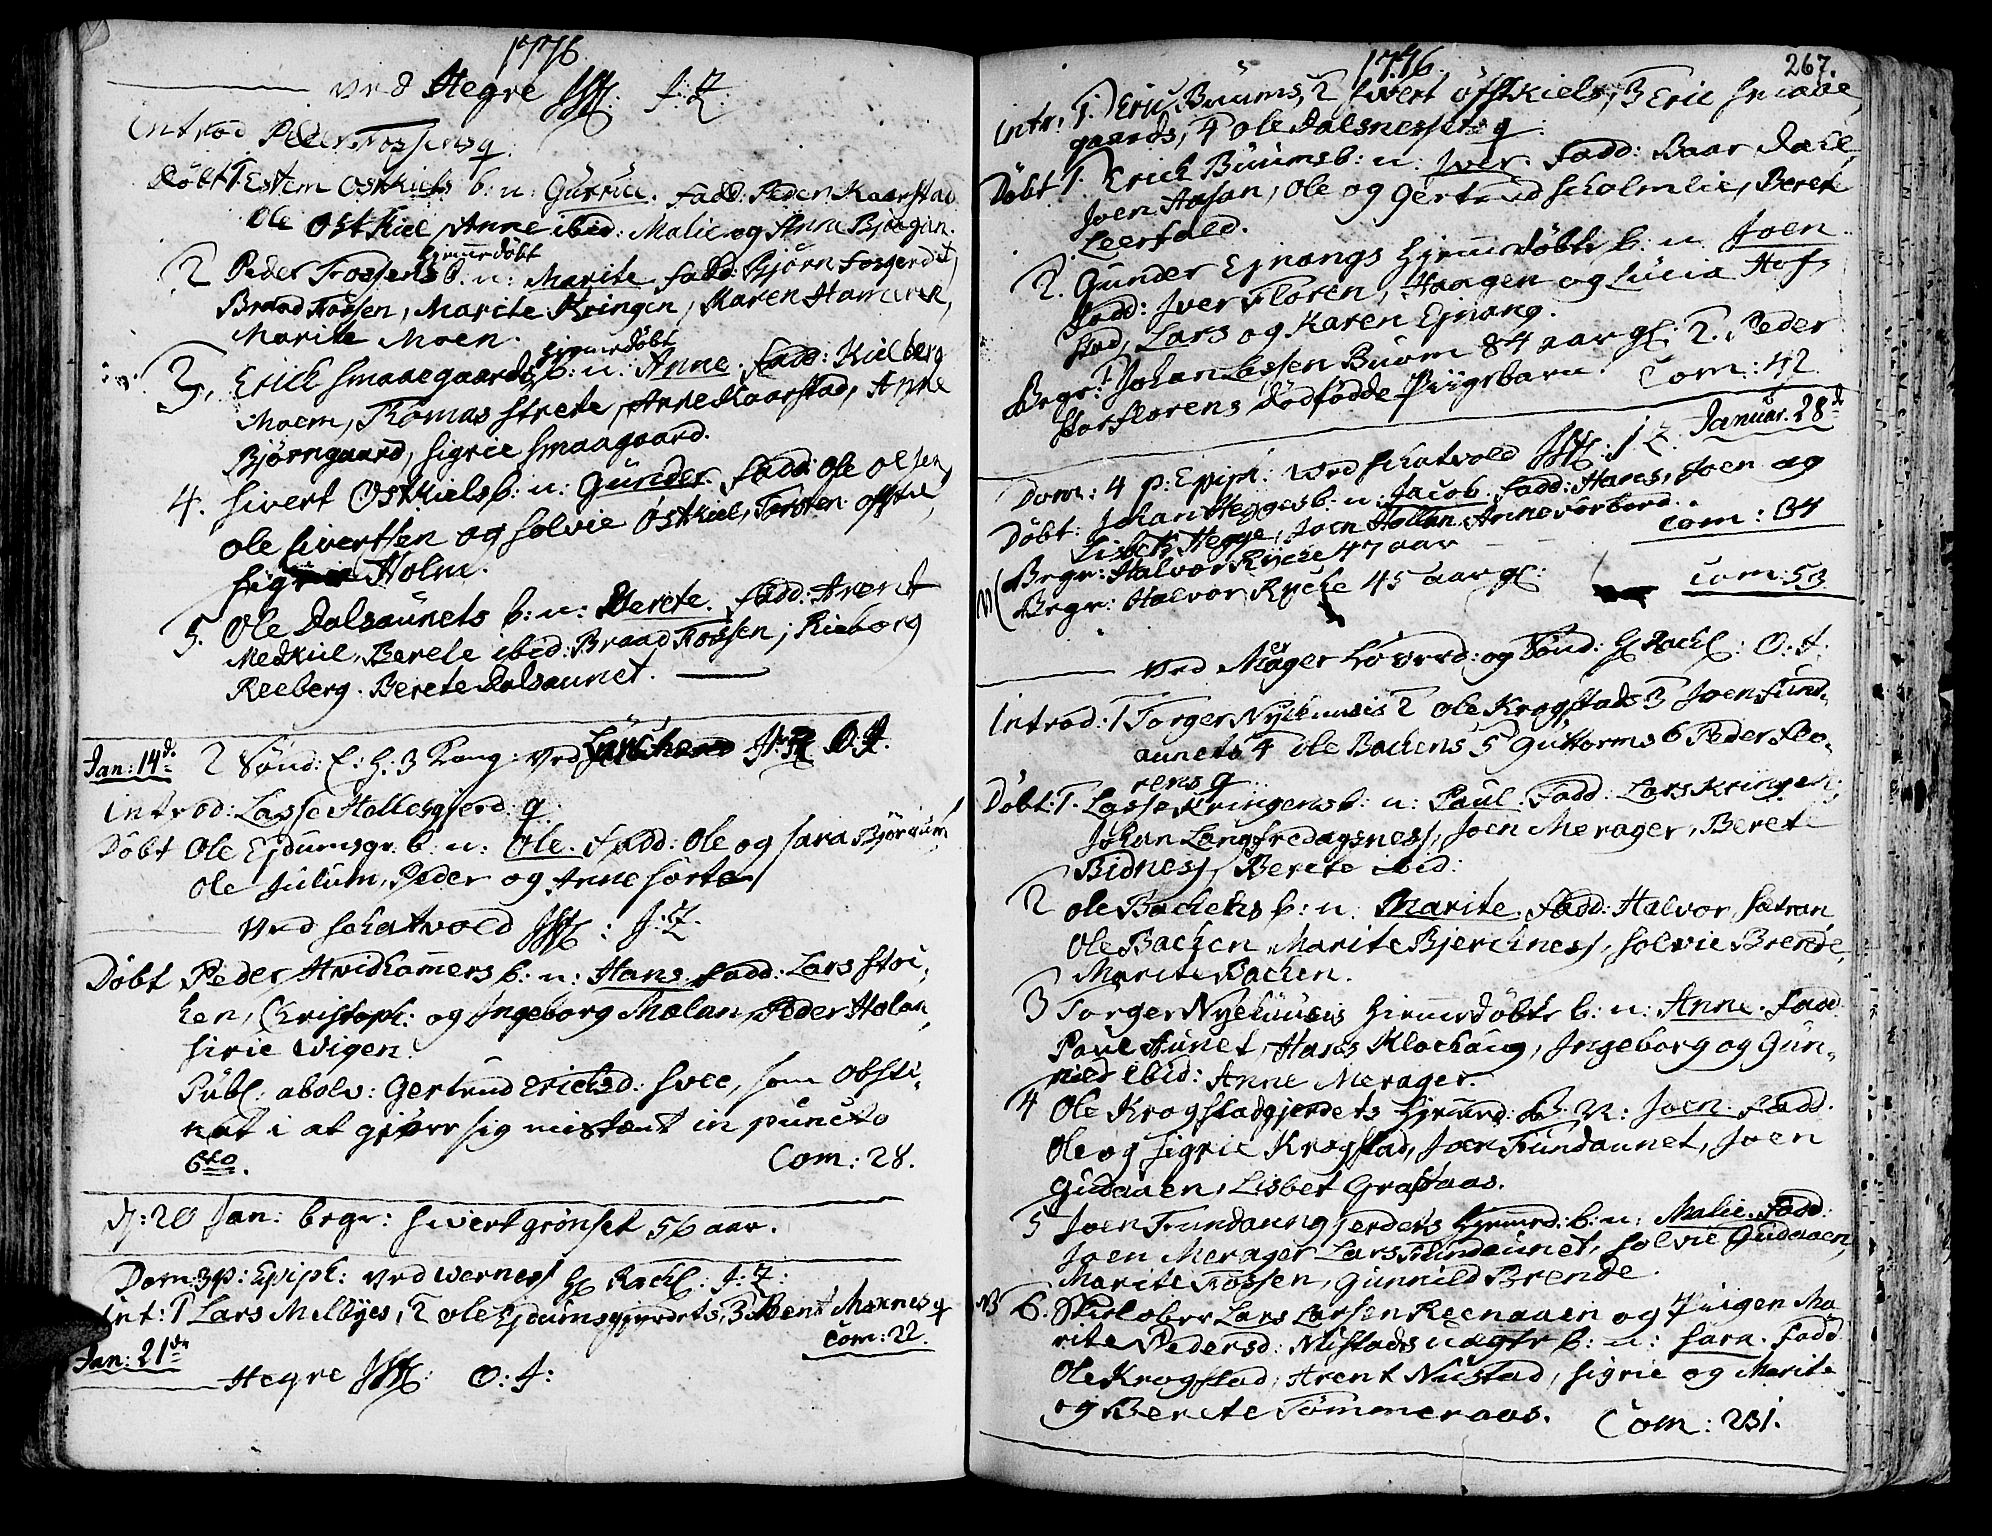 1776
ved Hegre J: Z.
Introd Peder Fossens q.
Döbt 1 Estem Ostkiels b: n: Gurue. Fadd: Peder Kaarstad
Ole Ostkiel, Anne ibid: Malie og Anne Bjørgen.
hjemmedöbt
2 Peder Fossens b: n: Marite Fadd: Bjørn Fosgerdet
Braad Fossen, Marite Kringen, Maren Hameren,
Marite Moen.
hjemmedöbt
3. Erich Smaaegaards b: n: Anne. Fadd: Kielberg
Moem, Thomas Strete, Anne Kaarstad, Anne
Bjørngaard, Sigrie Smaagaard.
4. Sivert Ostkiels b: n: Gunder. Fadd: Ole Olsen,
Ole Sivertsen og Solvie Østkiel, Torsten
Holm.
5. Ole Dalsaunets b: n: Berete. Fadd: Arent
Medkiel, Berete ibid: Braad Fossen, Rieborg
Reeberg. Berete Dalsaunet.
Jan: 14de 2 Sønd: e: H: 3 Kong: ved O. J.
Introd: Lasse Hollesgierd: q:
Döbt Ole Ejdumsgr. b: n: Ole. Fadd: Ole og Sara Bjørgum
Ole Julum, Peder og Anne Sorte
ved Schatvold J: Z.
Döbt Peder Hvidhamers b: n: Hans. Fadd: Lars Stoc-
ken, Christoph: og Ingeborg Mælan, Peder Holan,
Sirie Wigen.
Publ: absolv: Gertrud Ericksd: Svee, som obsti-
nat i at gjørr sig mistænt in puncto
6to. Com: 28.
d: 20 Jan: begr: Sivert Grönset 56 aar.
Dom: 3 p: Epiph: ved Wernes H Rachl: J: Z:
Int: 1 Lars Melbyes, 2 Ole Ejdumsgjerdets, 3 Bent Moxnes q
Com: 22.
Jan: 21de
Hegre O: J:
1776. 267.
Intr: 1. Eric Buums, 2 Sivert Østkiels, 3 Eric Smaae
gaards, 4 Ole Dalsnessets q:
Döbt 1. Erich Buums b: n: Iver. Fadd: Baar Dahl,
Joen Aasan, Ole og Gertrud Scholmlie, Berete
Leerfald.
2. Gunder Ejnangs hjemmedöbte b: n. Joen.
Fadd: Iver Floren, Haagen og Lucia Hof-
stad, Lars og Karen Ejnang.
Begr: 1 Johan Lassen Buum 84 aar gl: 2. Peder
Storflorens dödfödde Piigebarn. Com: 42.
Januar. 28de
Dom: 4 p: Epiph: ved Schatvold J Z.
Döbt: Johan Hegges b: n: Jacob. Fadd: Hans, Joen og
Lisbeth Hegge, Joen Hollan, Anne Vorbord.
Com: 34
Begr: Halvor Rycke 47 aar
Begr: Halvor Rycke 45 aar gl: Com: 53.
ved Mager Lö verd: og Sønd: H Rachl: O: J:
Introd: 1 Torger Nyehuusis 2 Ole Krogstads 3 Joen Fund-
aunets 4 Ole Backens 5 Guttorms 6 Peder Flo-
rens q.
Döbt: 1. Lasse Kringens b: n: Paul. Fadd: Lars Kringen,
Johan Langfredagsness, Joen Merager, Berete
Bidness, Berete ibid:
2 Ole Backens b: n: Marite. Fadd: Halvor Sætran
Ole Backen, Marite Bjerckness, Solvie Brende,
Marite Backen.
3 Torger Nyehuusis hjemmedöbte b: n: Anne. Fadd
Paul Aunet, Hans Klockaug, Ingeborg og Gun-
nild ibid: Anne Merager.
4 Ole Krogstadgjerdets hjemmed: b: n: Joen. Fadd.
Ole og Sigrie Krogstad, Joen Fundaunet, Joen
Gudaaen, Lisbet Grafaas.
5 Joen Fundaungjerdets hjemmed: b: n: Malie. Fadd:
Joen Merager Lars Fundaunet, Solvie Gudaaen,
Marite Fossen, Gunnild Brende.
NB 6. Skieløber Lars Larsen Reenaaen og Piigen Ma
rite Pedersd: Nustads uægte b: n: Sara. Fadd
Ole Krogstad, Arent Nustad, Sigrie og Marite
og Berete Tömmeraas. Com: 231.